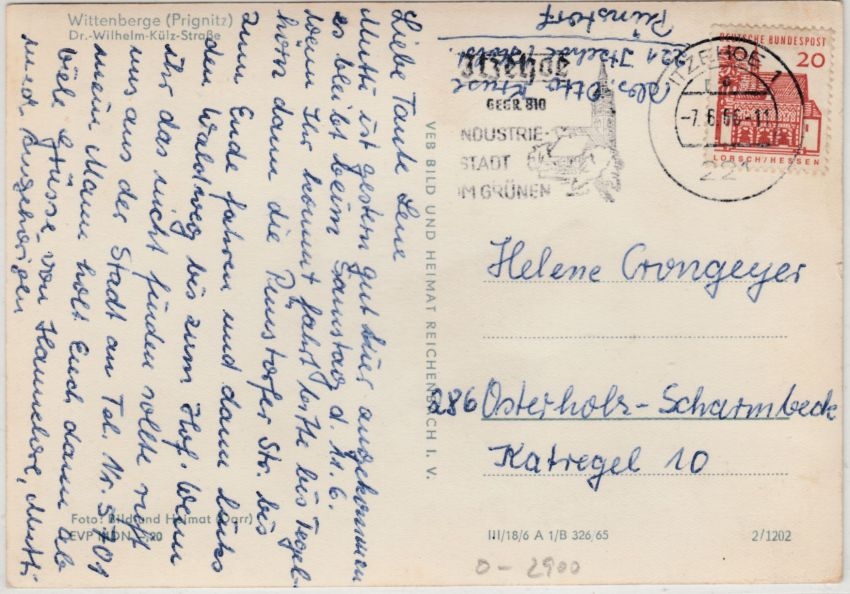 Wittenberge (Prignitz)
Dr.-Wilhelm-Külz-Straße
Liebe Tante Lene
Mutti ist gestern gut hier angekommen
es bleibt beim Samstag d. 11.6.
Wenn Ihr kommt fahrt bitte bis Tegel-
hörn dann die Rünstorfer Str. bis
zum Ende fahren und dann links
den Waldweg bis zum Hof. Wenn
Ihr das nicht finden sollte ruft
uns aus der Stadt an Tel. Nr. 5701
mein Mann holt Euch dann ab
viele Grüsse von Hannelore, Mutti
und Angehörigen
Foto: Bild und Heimat (Darr)
EVP MDN 0,20
VEB BILD UND HEIMAT REICHENBACH I. V.
Abs. Otto Kruse
221 Itzehoe/Holst.
Rünstorf
Itzehoe
GEGR. 810
INDUSTRIE-
STADT
IM GRÜNEN
ITZEHOE 1
-7.6.66-11
221
DEUTSCHE BUNDESPOST
20
LORSCH/HESSEN
Helene Crongeyer
286 Osterholz-Scharmbeck
Katregel 10
III/18/6 A 1/B 326/65
2/1202
0-2900